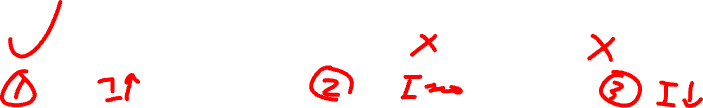 ✓ × ×
① I↑ ② I~∞ ③ I↓